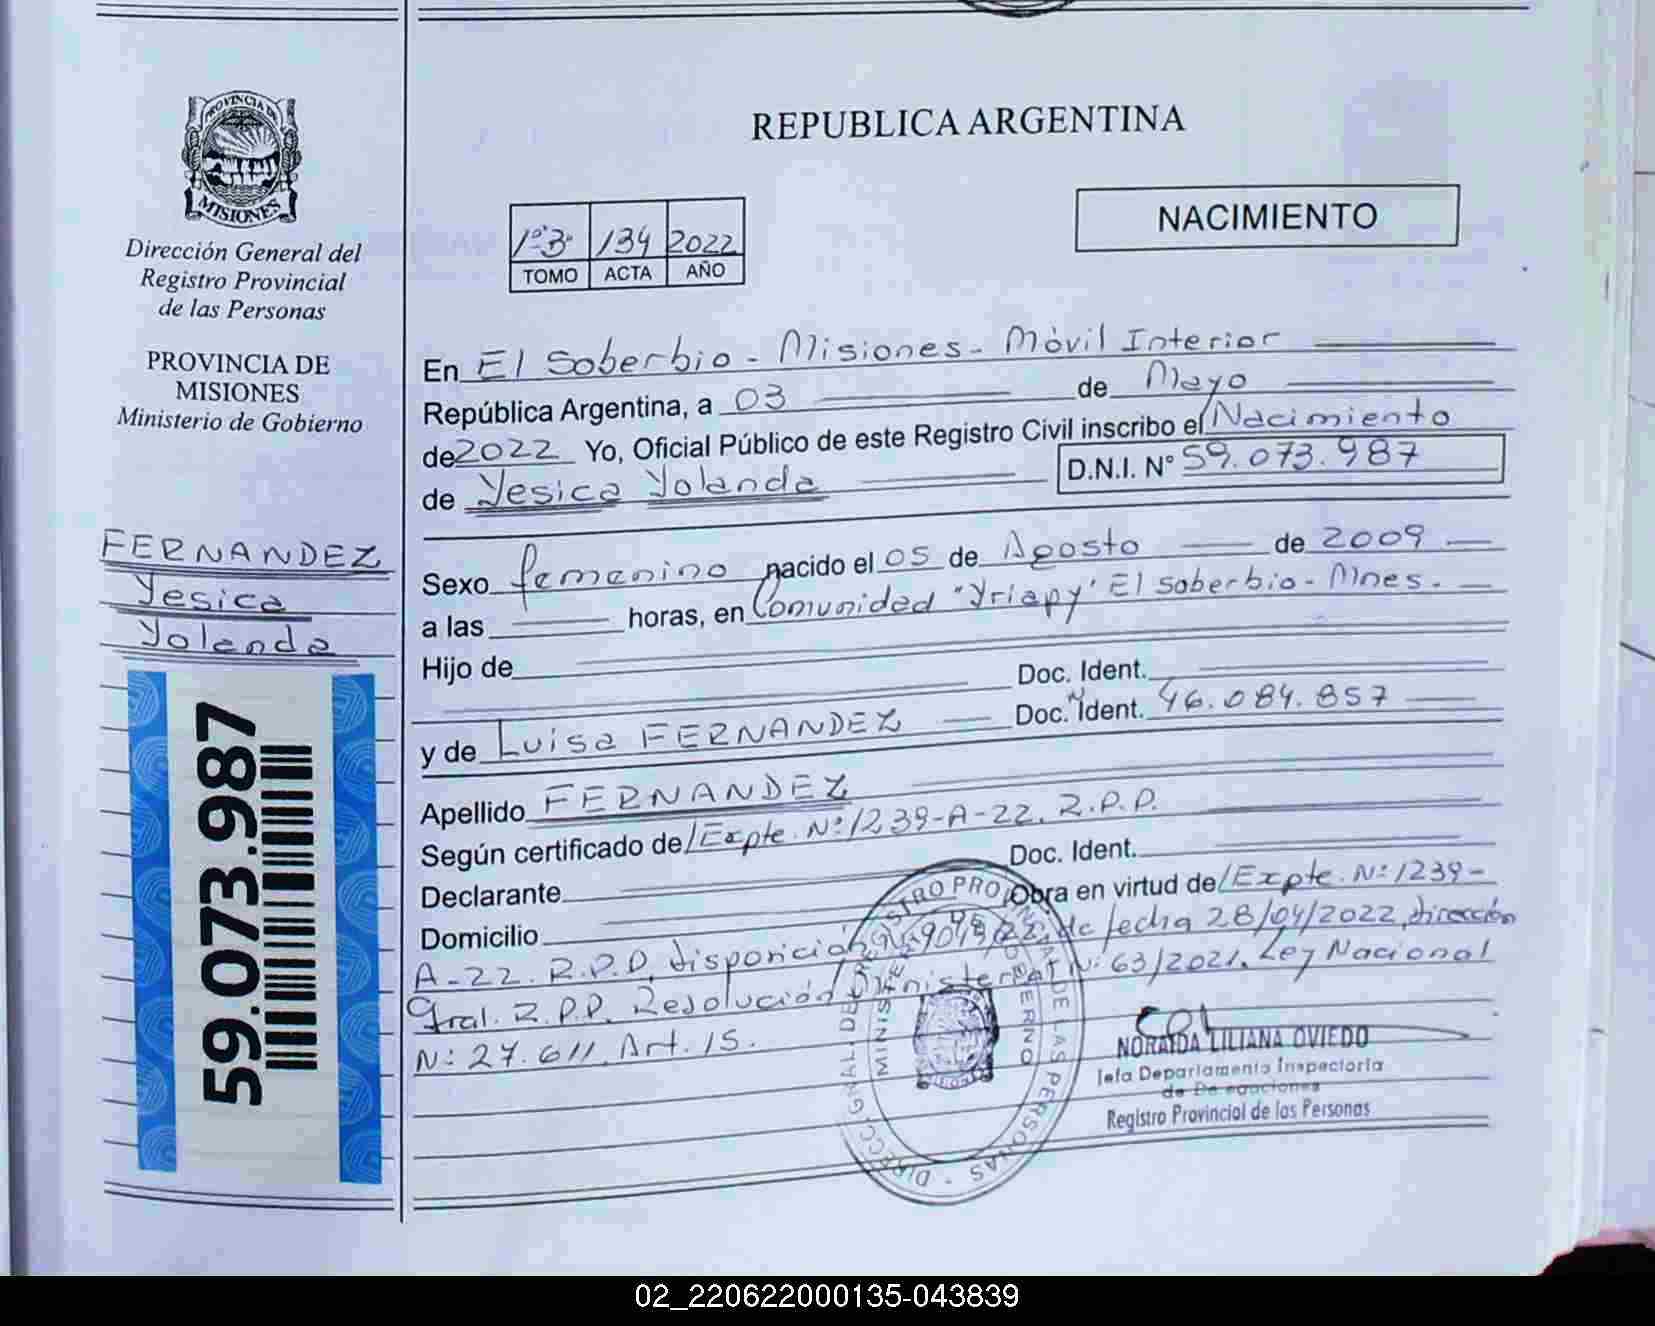 PROVINCIA DE
MISIONES
Dirección General del
Registro Provincial
de las Personas
PROVINCIA DE
MISIONES
Ministerio de Gobierno
FERNANDEZ
Yesica
Yolanda
59.073.987
REPUBLICA ARGENTINA
1º3º 134 2022
TOMO ACTA AÑO
NACIMIENTO
En El Soberbio - Misiones - Móvil Interior
República Argentina, a 03 de Mayo
de 2022 Yo, Oficial Público de este Registro Civil inscribo el/Nacimiento
de Yesica Yolanda D.N.I. N° 59.073.987
Sexo femenino nacido el 05 de Agosto de 2009
a las horas, en Comunidad "Yriapy" El Soberbio - Mnes.
Hijo de Doc. Ident.
y de Luisa FERNANDEZ Doc. Ident. 46.084.857
Apellido FERNANDEZ
Según certificado de/Expte. Nº 1239-A-22. R.P.P.
Declarante Doc. Ident.
Domicilio Obra en virtud de/Expte. Nº 1239-
A-22. R.P.P. disposición de fecha 28/04/2022, dirección
Gral. R.P.P. Resolución Ministerial Nº 63/2021. Ley Nacional
Nº 27.611. Art. 15.
NORAIDA LILIANA OVIEDO
Jefa Departamento Inspectoría
de Delegaciones
Registro Provincial de las Personas
02_220622000135-043839